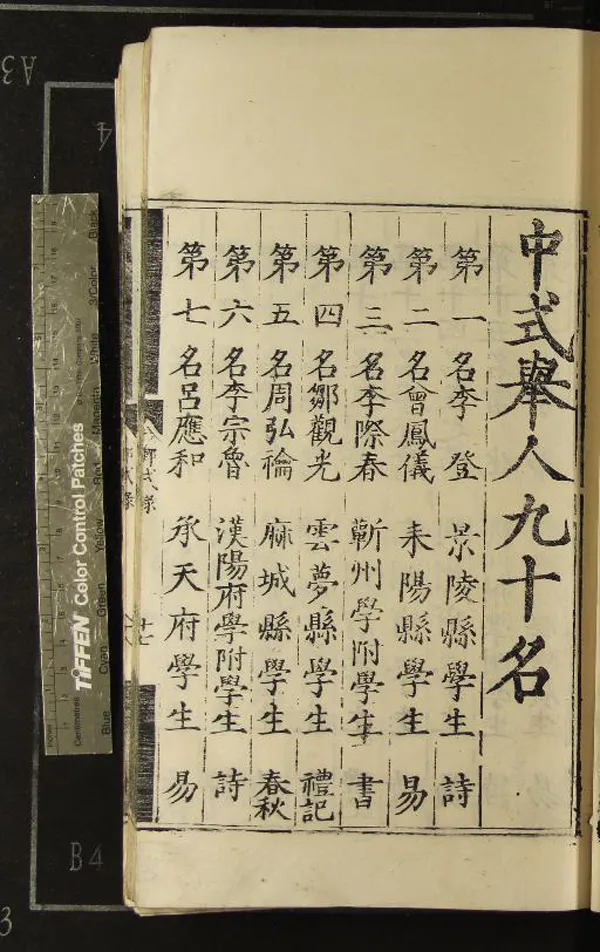 中式舉人九十名
第一名李登 景陵縣學生 詩
第二名曾鳳儀 耒陽縣學生 易
第三名李際春 蘄州學附學生 書
第四名鄒觀光 雲夢縣學生 禮記
第五名周弘禴 麻城縣學生 春秋
第六名李宗魯 漢陽府學附學生 詩
第七名呂應和 承天府學生 易
鄉式錄
十七
TIFFEN Color Control Patches
Centimetres
Blue Cyan Green Yellow Red Magenta White 3/Color Black
A3
4
B4
3